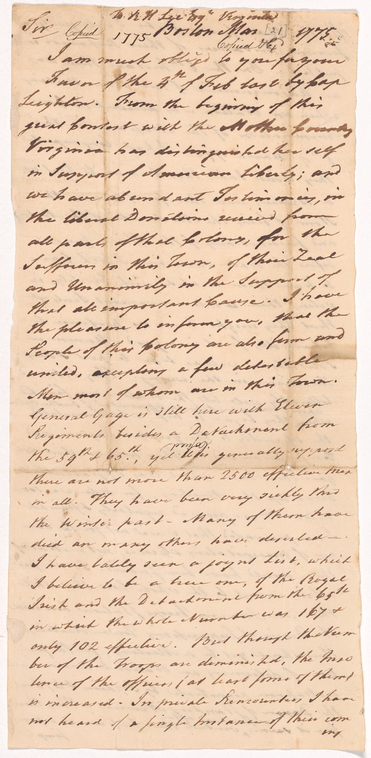 to R H Lee Esqr Virginia
Sir Copied 1775 Boston Mar [21] 1775
Copied
I am much obligd to you for your
Favor of the 4th of Feb last by Cap
Leighton. From the beginning of this
great Contest with the Mother Country
Virginia has distinguished herself
in Support of American Liberty; and
we have abundant Testimonies, in
the liberal Donations received from
all parts of that Colony, for the
Sufferers in this Town, of their Zeal
and Unanimity in the Support of
that all important Cause. I have
the pleasure to inform you, that the
People of this Colony are also firm and
united, excepting a few detestable
Men most of whom are in this Town.
General Gage is still here with Eleven
Regiments besides a Detachment from
the 59th & 65th, yet it is generally supposd
there are not more than 2500 effective men
in all. They have been very sickly thro
the Winter past. Many of them have
died an many others have deserted.
I have lately seen a joynt List, which
I believe to be a true one, of the Royal
Irish and the Detachment from the 65th
in which the whole Number was 167 &
only 102 effective. But though the Num
ber of the Troops are diminishd, the Inso
lence of the officers (at least some of them)
is increased. In private Rencounters I have
not heard of a single Instance of their com
ing